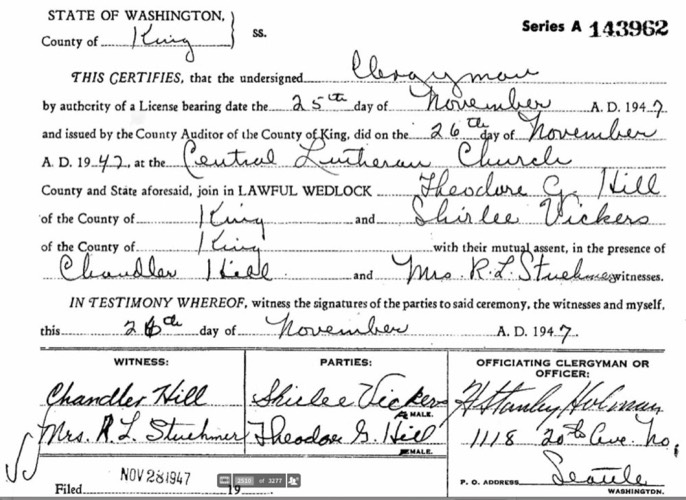 STATE OF WASHINGTON, } ss.
Series A 143962
County of King
THIS CERTIFIES, that the undersigned Clergyman
by authority of a License bearing date the 25th day of November A. D. 1947
and issued by the County Auditor of the County of King, did on the 26th day of November
A. D. 1947, at the Central Lutheran Church
County and State aforesaid, join in LAWFUL WEDLOCK Theodore G. Hill
of the County of King and Shirlee Vickers
of the County of King with their mutual assent, in the presence of
Chandler Hill and Mrs. R. L. Stuehmer witnesses.
IN TESTIMONY WHEREOF, witness the signatures of the parties to said ceremony, the witnesses and myself,
this 26th day of November A. D. 1947.
WITNESS:
Chandler Hill
Mrs. R. L. Stuehmer
PARTIES:
Shirlee Vickers
MALE.
Theodore G. Hill
FEMALE.
OFFICIATING CLERGYMAN OR
OFFICER:
H Stanley Holman
1118 20th Ave. No.
P. O. ADDRESS Seattle
WASHINGTON.
Filed NOV 28 1947 19
2510 of 3277